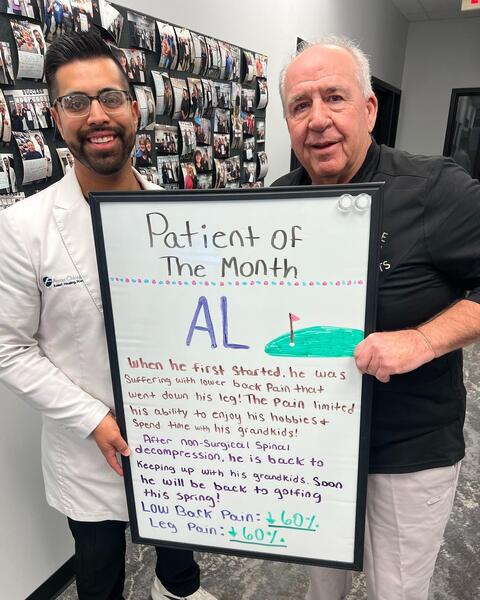 Patient of
The Month
AL
When he first started, he was
suffering with lower back pain that
went down his leg! The pain limited
his ability to enjoy his hobbies +
spend time with his grandkids!
After non-surgical spinal
decompression, he is back to
keeping up with his grandkids. Soon
he will be back to golfing
this spring!
Low Back Pain: ↓60%
Leg Pain: ↓60%